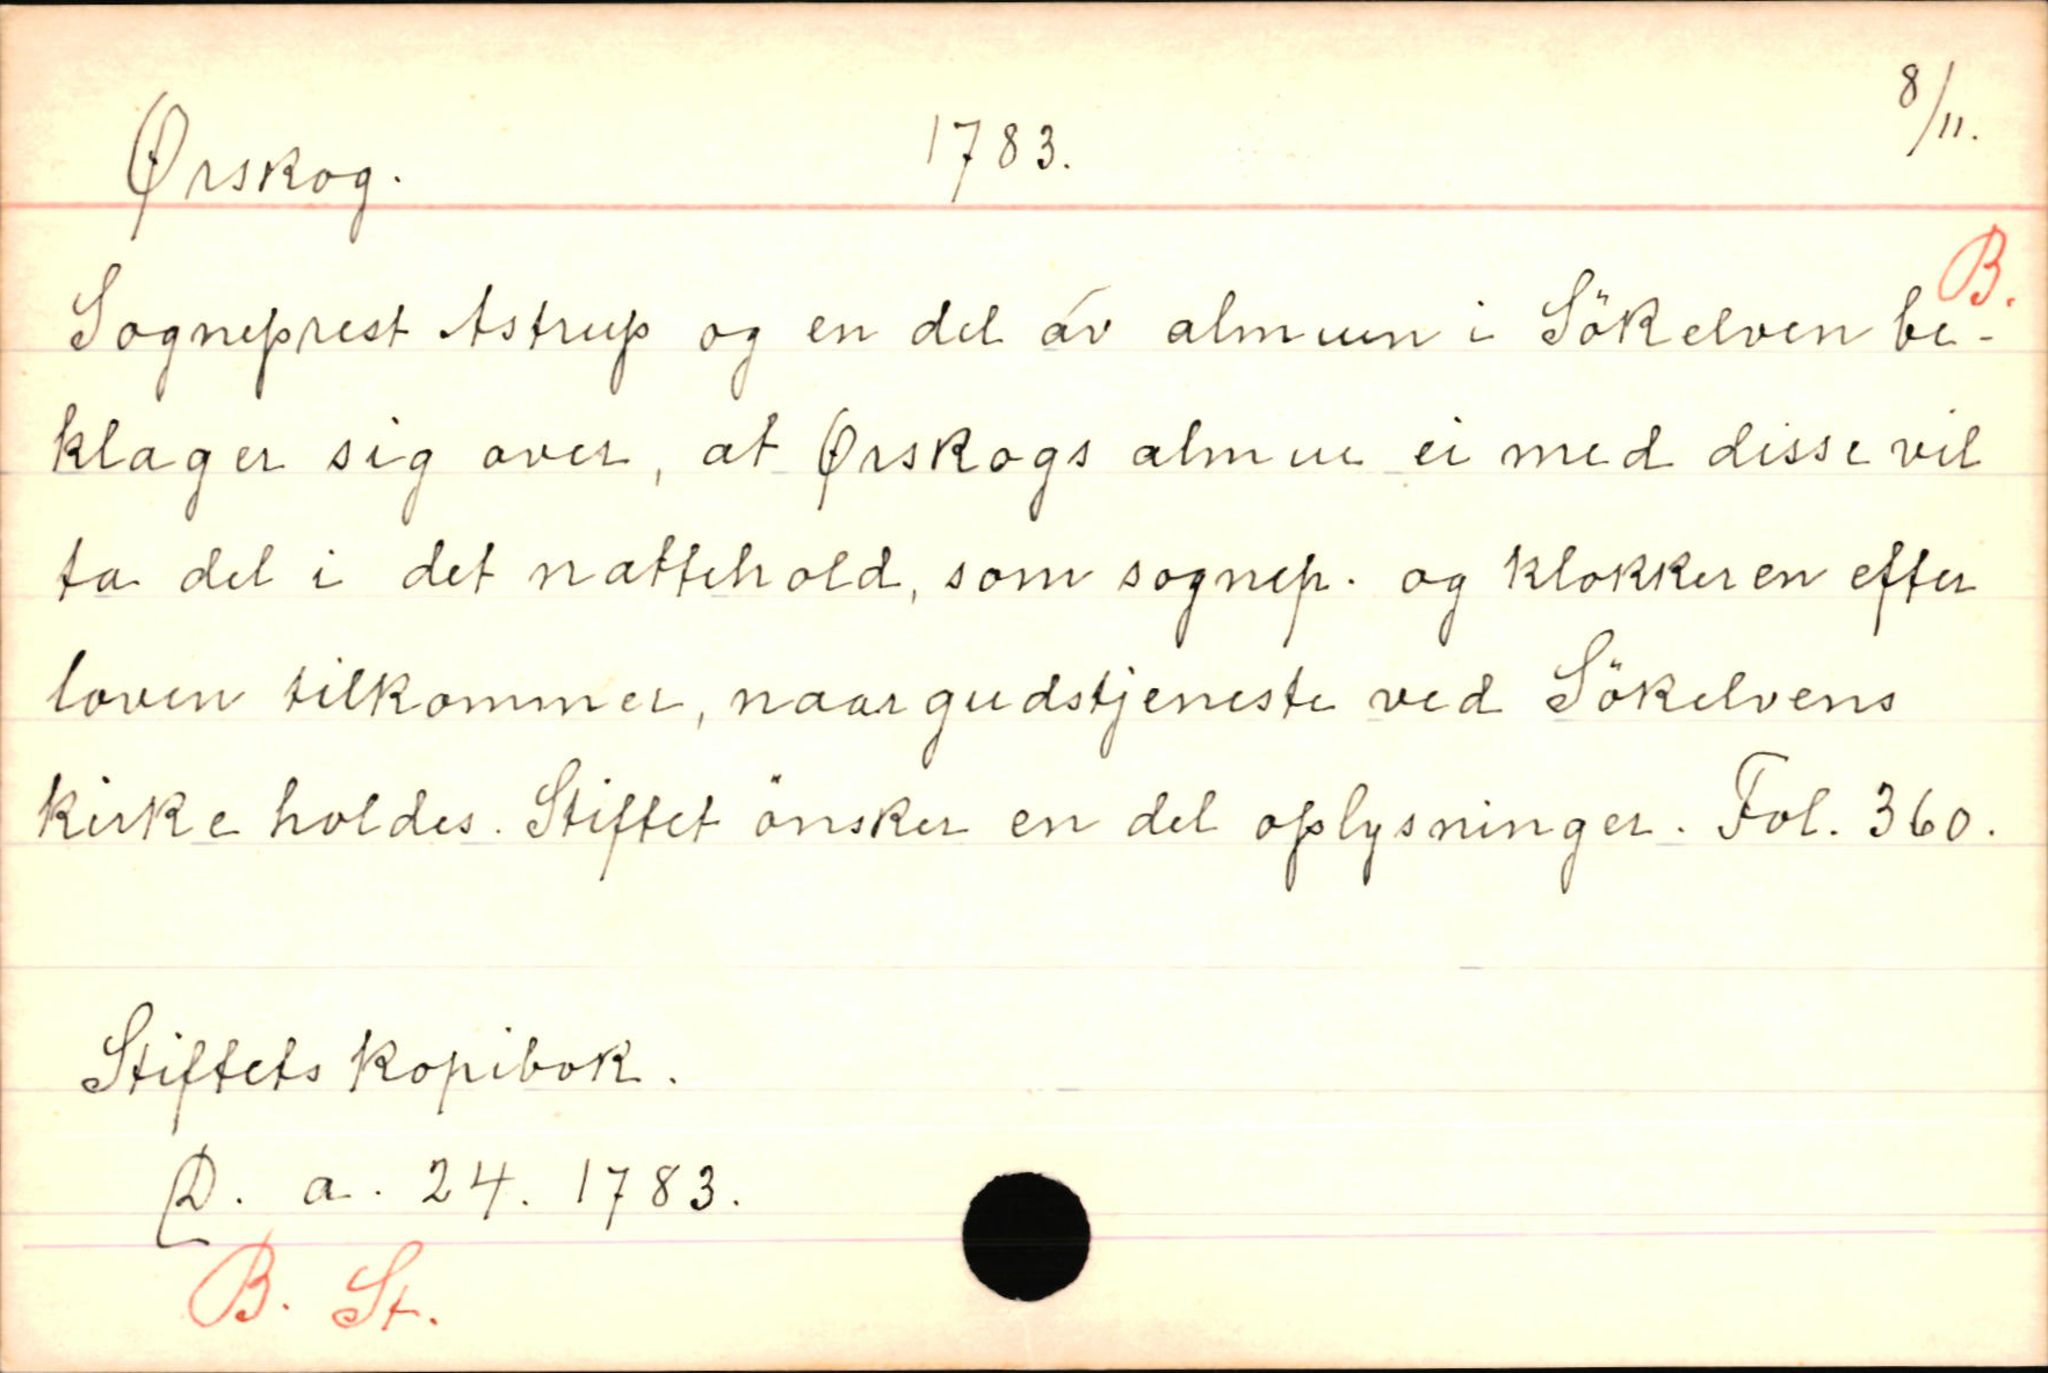 Ørskog. 1783. 8/11.
B.
Sogneprest Astrup og en del av almuen i Sökelven be-
klager sig over, at Ørskogs almue ei med disse vil
ta del i det nattehold, som sognep. og klokkeren efter
loven tilkommer, naar gudstjeneste ved Sökelvens
kirke holdes. Stiftet önsker en del oplysninger. Fol. 360.
Stiftets kopibok.
D. a. 24. 1783.
B. St.